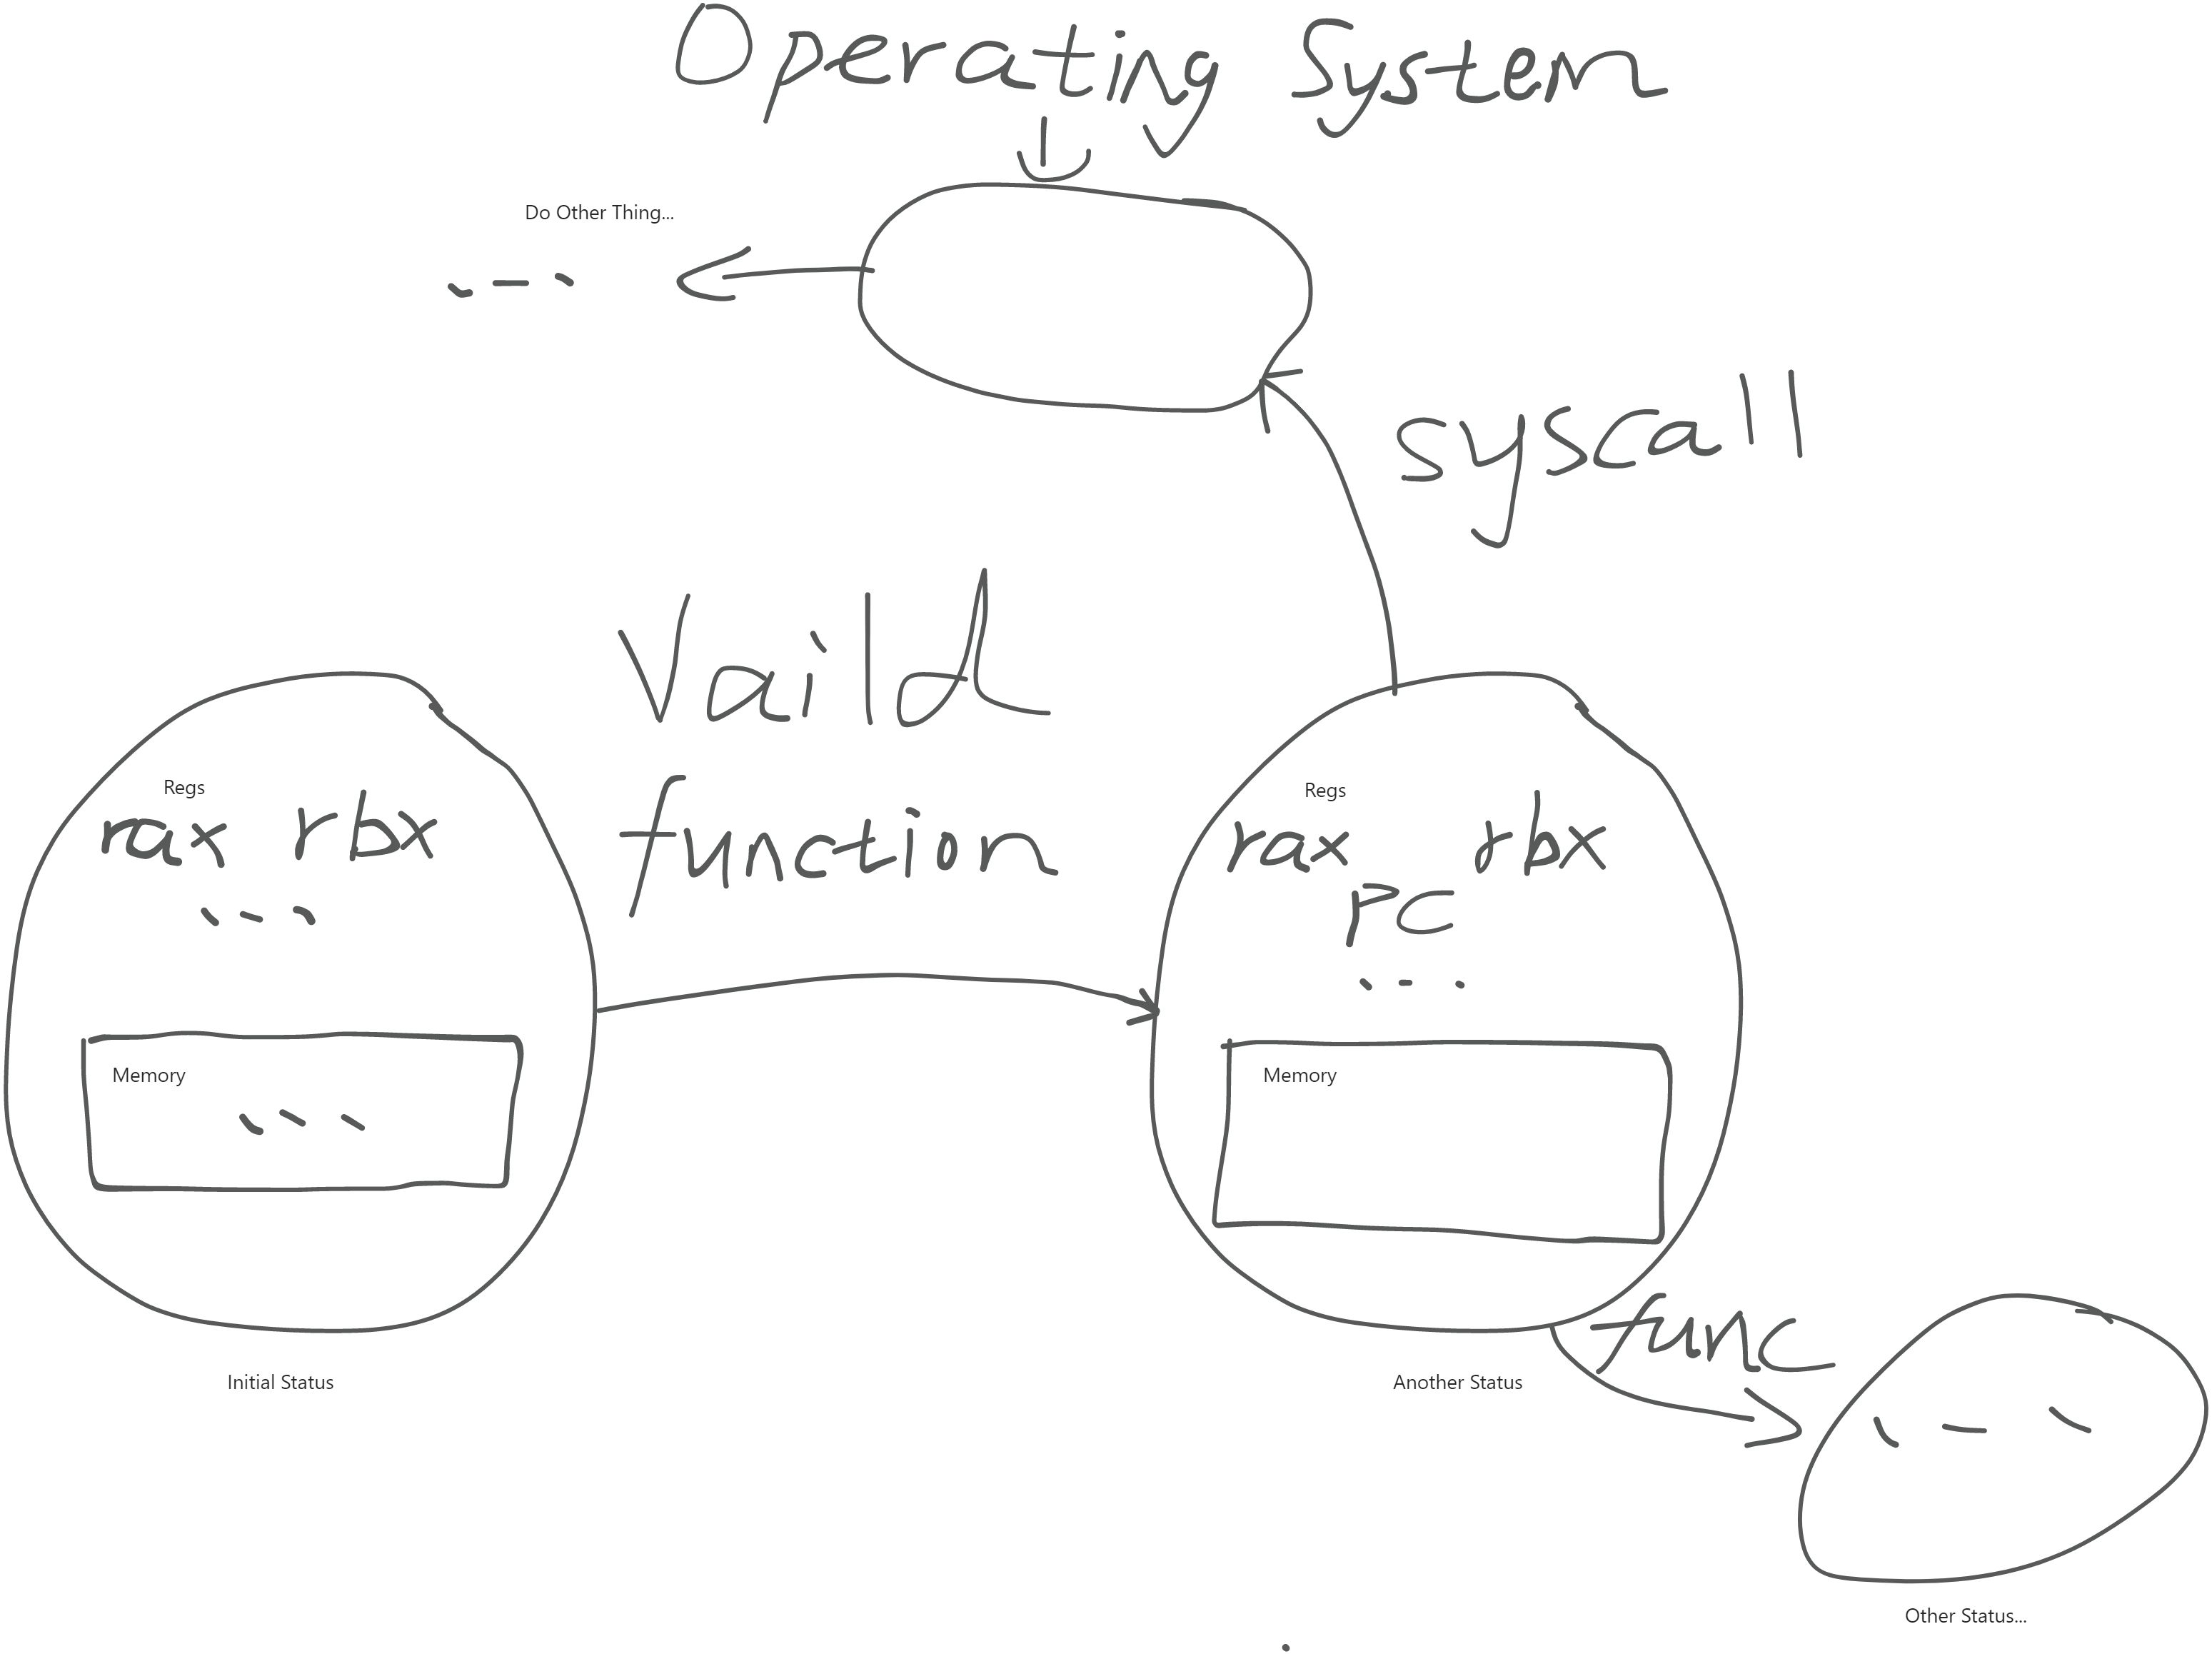 Operating System
Do Other Thing...
---
syscall
Vaild
function
Regs
rax rbx
---
Memory
---
Initial Status
Regs
rax rbx
PC
---
Memory
Another Status
func
---
Other Status...